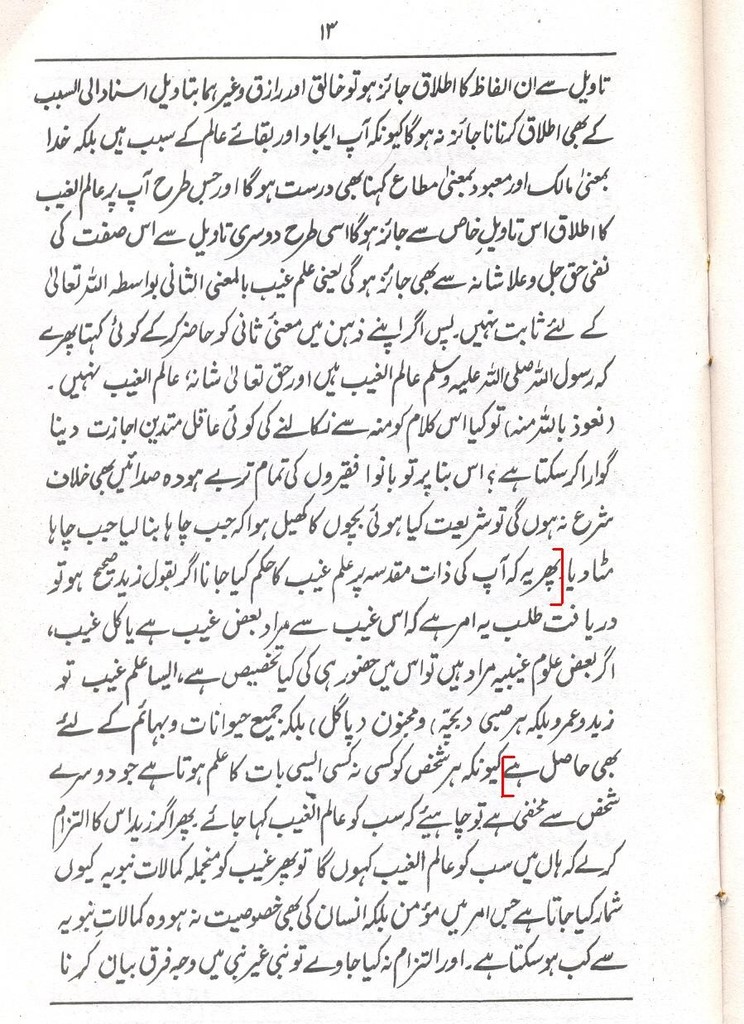 ۱۳
تاویل سے ان الفاظ کا اطلاق جائز ہو تو خالق اور رازق وغیرہما بتاویل اسناد الی السبب
کے بھی اطلاق کرنا ناجائز نہ ہوگا کیونکہ آپ ایجاد اور بقائے عالم کے سبب ہیں بلکہ خدا
بمعنیٰ مالک اور معبود بمعنیٰ مطاع کہنا بھی درست ہوگا اور جس طرح آپ پر عالم الغیب
کا اطلاق اس تاویلِ خاص سے جائز ہوگا اسی طرح دوسری تاویل سے اس صفت کی
نفی حق جل وعلا شانہ سے بھی جائز ہوگی یعنی علم غیب بالمعنی الثانی بواسطہ اللہ تعالیٰ
کے لئے ثابت نہیں۔ پس اگر اپنے ذہن میں معنیٔ ثانی کو حاضر کرکے کوئی کہتا پھرے
کہ رسول اللہ صلی اللہ علیہ وسلم عالم الغیب ہیں اور حق تعالیٰ شانہ، عالم الغیب نہیں۔
(نعوذ باللہ منہ) تو کیا اس کلام کو منہ سے نکالنے کی کوئی عاقل متدین اجازت دینا
گوارا کر سکتا ہے؟ اس بنا پر تو بانوا فقیروں کی تمام تر بے ہودہ صدائیں بھی خلاف
شرع نہ ہوں گی تو شریعت کیا ہوئی بچوں کا کھیل ہوا کہ جب چاہا بنا لیا جب چاہا
مٹا دیا [پھر یہ کہ آپ کی ذات مقدسہ پر علم غیب کا حکم کیا جانا اگر بقول زید صحیح ہو تو
دریافت طلب یہ امر ہے کہ اس غیب سے مراد بعض غیب ہے یا کل غیب،
اگر بعض علوم غیبیہ مراد ہیں تو اس میں حضور ہی کی کیا تخصیص ہے، ایسا علم غیب تو
زید و عمرو بلکہ ہر صبی (بچہ) و مجنون (پاگل) بلکہ جمیع حیوانات و بہائم کے لئے
بھی حاصل ہے] کیونکہ ہر شخص کو کسی نہ کسی ایسی بات کا علم ہوتا ہے جو دوسرے
شخص سے مخفی ہے تو چاہیئے کہ سب کو عالم الغیب کہا جائے۔ پھر اگر زید اس کا التزام
کر لے کہ ہاں میں سب کو عالم الغیب کہوں گا تو پھر غیب کو منجملہ کمالات نبویہ کیوں
شمار کیا جاتا ہے جس امر میں مؤمن بلکہ انسان کی بھی خصوصیت نہ ہو وہ کمالاتِ نبویہ
سے کب ہو سکتا ہے۔ اور التزام نہ کیا جاوے تو نبی غیر نبی میں وجہ فرق بیان کرنا